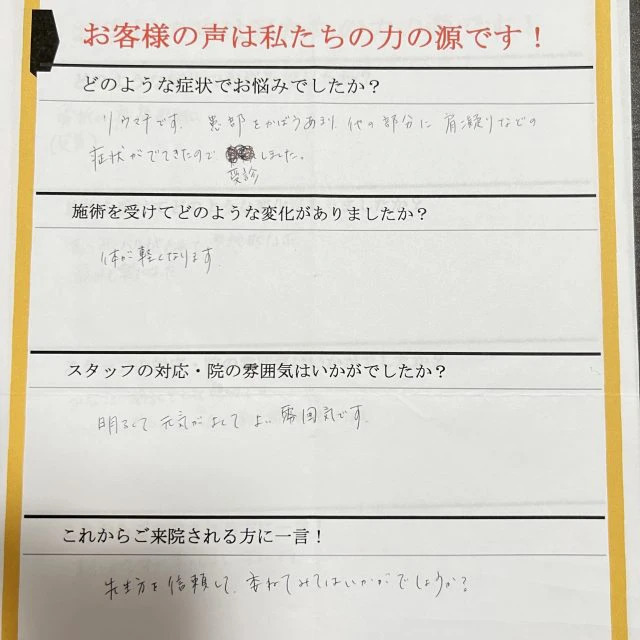 お客様の声は私たちの力の源です！
どのような症状でお悩みでしたか？
リウマチです。患部をかばうあまり、他の部分に肩凝りなどの
症状がでてきたので しました。
受診
施術を受けてどのような変化がありましたか？
体が軽くなります。
スタッフの対応・院の雰囲気はいかがでしたか？
明るくて元気がよくてよい雰囲気です。
これからご来院される方に一言！
先生方を信頼して、委ねてみてはいかがでしょうか？